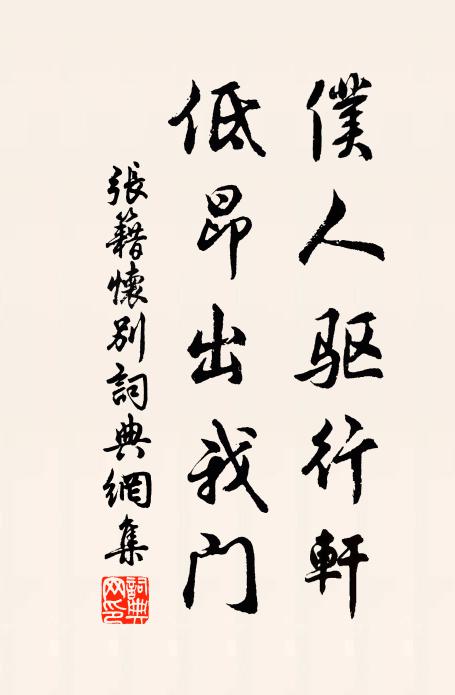 僕人驱行軒
低昂出我门
張籍懷別詞典網集
詞典网印